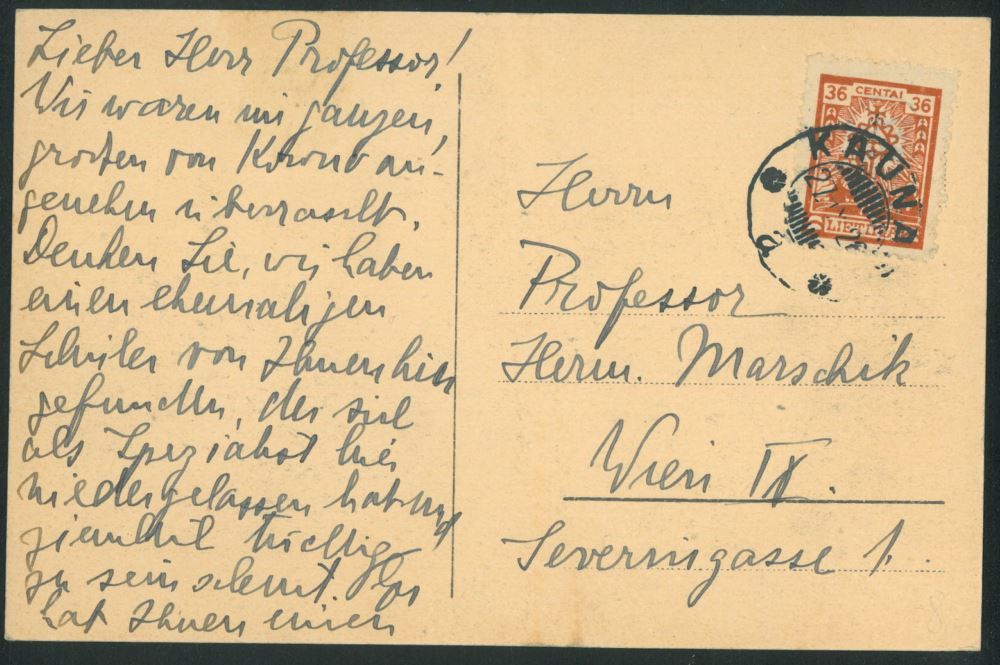 Lieber Herr Professor!
Wir waren im ganzen,
großen von Kowno an-
genehm überrascht.
Denken Sie, wir haben
einen ehemaligen
Schüler von Ihnen hier
gefunden, der sich
als Spezialist hier
niedergelassen hat und
ziemlich tüchtig
zu sein scheint. Er
hat Ihnen einen
36 CENTAI 36
LIETUVA
KAUNAS
Herrn
Professor
Herm. Marschik
Wien IX.
Severingasse 1.
8